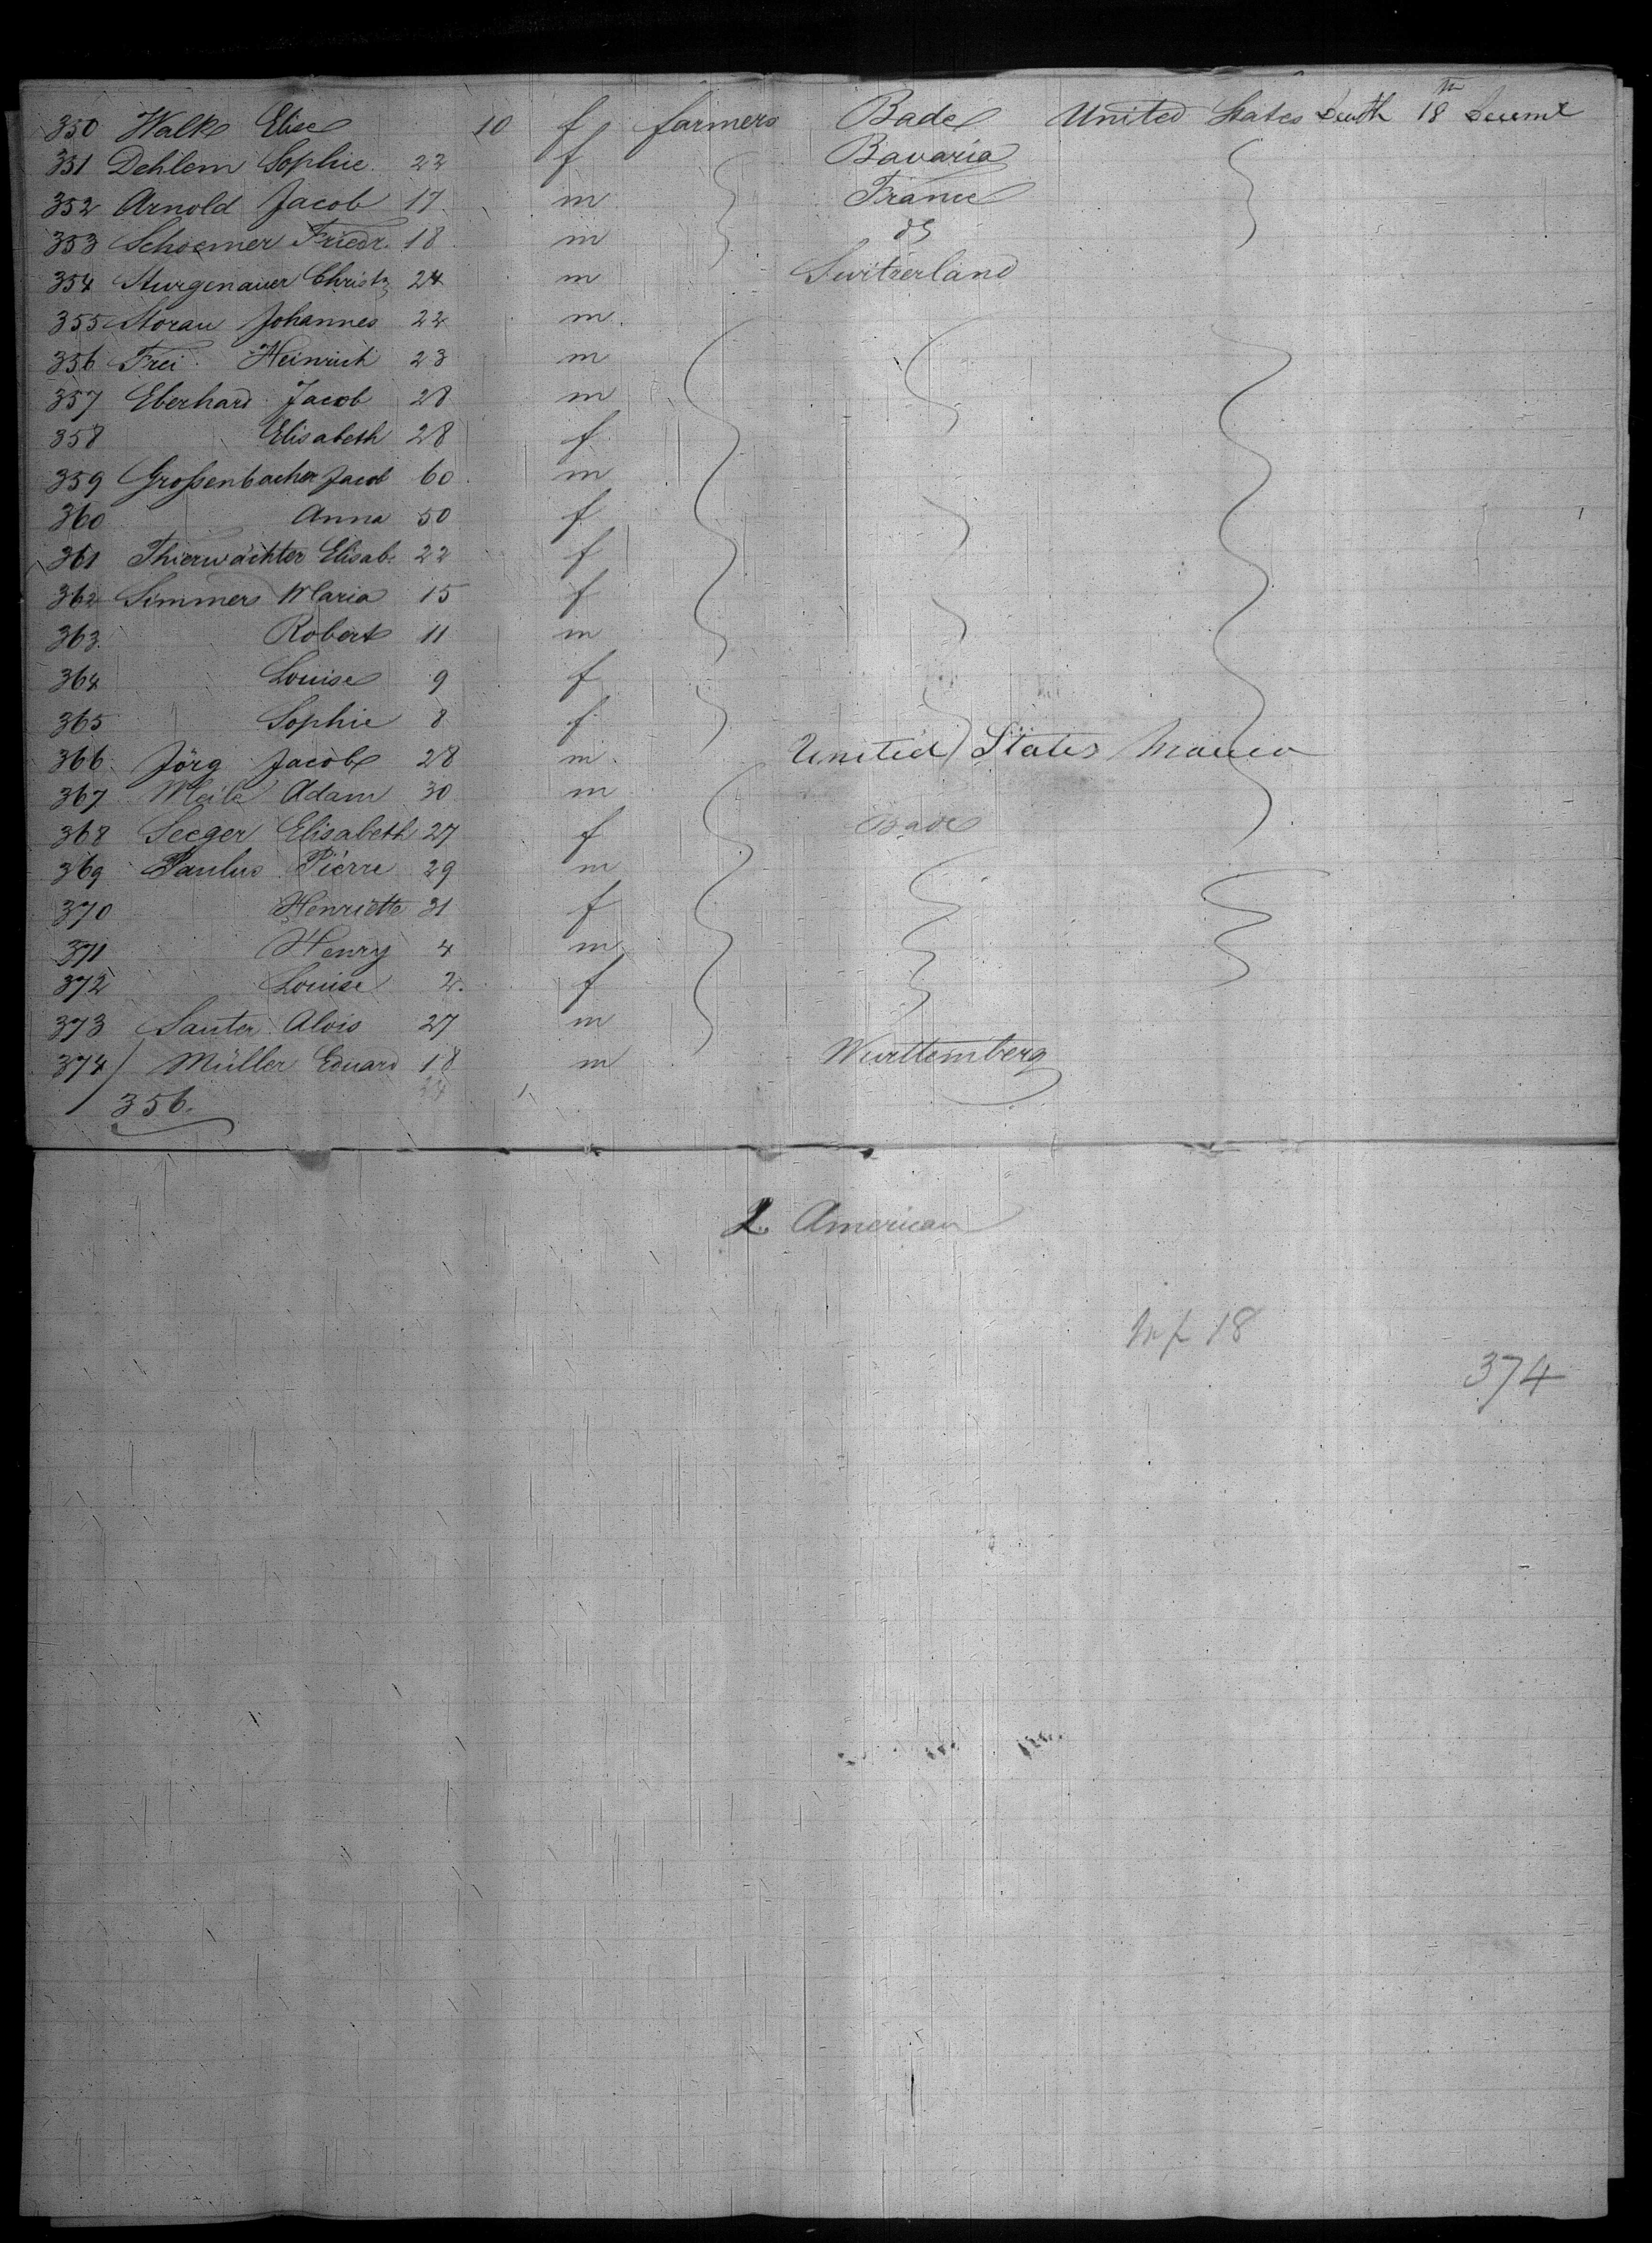 350 Walk Elise 10 f farmers Bade United States Death 18th Decemt
351 Dehlem Sophie 22 f Bavaria
352 Arnold Jacob 17 m France
353 Schoemer Friedr. 18 m do
354 Sturgenauer Christ. 24 m Switzerland
355 Storau Johannes 22 m
356 Frei Heinrich 23 m
357 Eberhard Jacob 28 m
358 Elisabeth 28 f
359 Großenbacher Jacob 60 m
360 Anna 50 f
361 Thierwächter Elisab. 22 f
362 Simmers Maria 15 f
363 Robert 11 m
364 Louise 9 f
365 Sophie 8 f
366 Jörg Jacob 28 m United States
367 Meile Adam 30 m
368 Seeger Elisabeth 27 f Bade
369 Paulus Pierre 29 m
370 Henriette 31 f
371 Henry 4 m
372 Louise 2. f
373 Sauter Alois 27 m
374 Müller Eduard 18 m Wurttemberg
356.
2 American
18
374